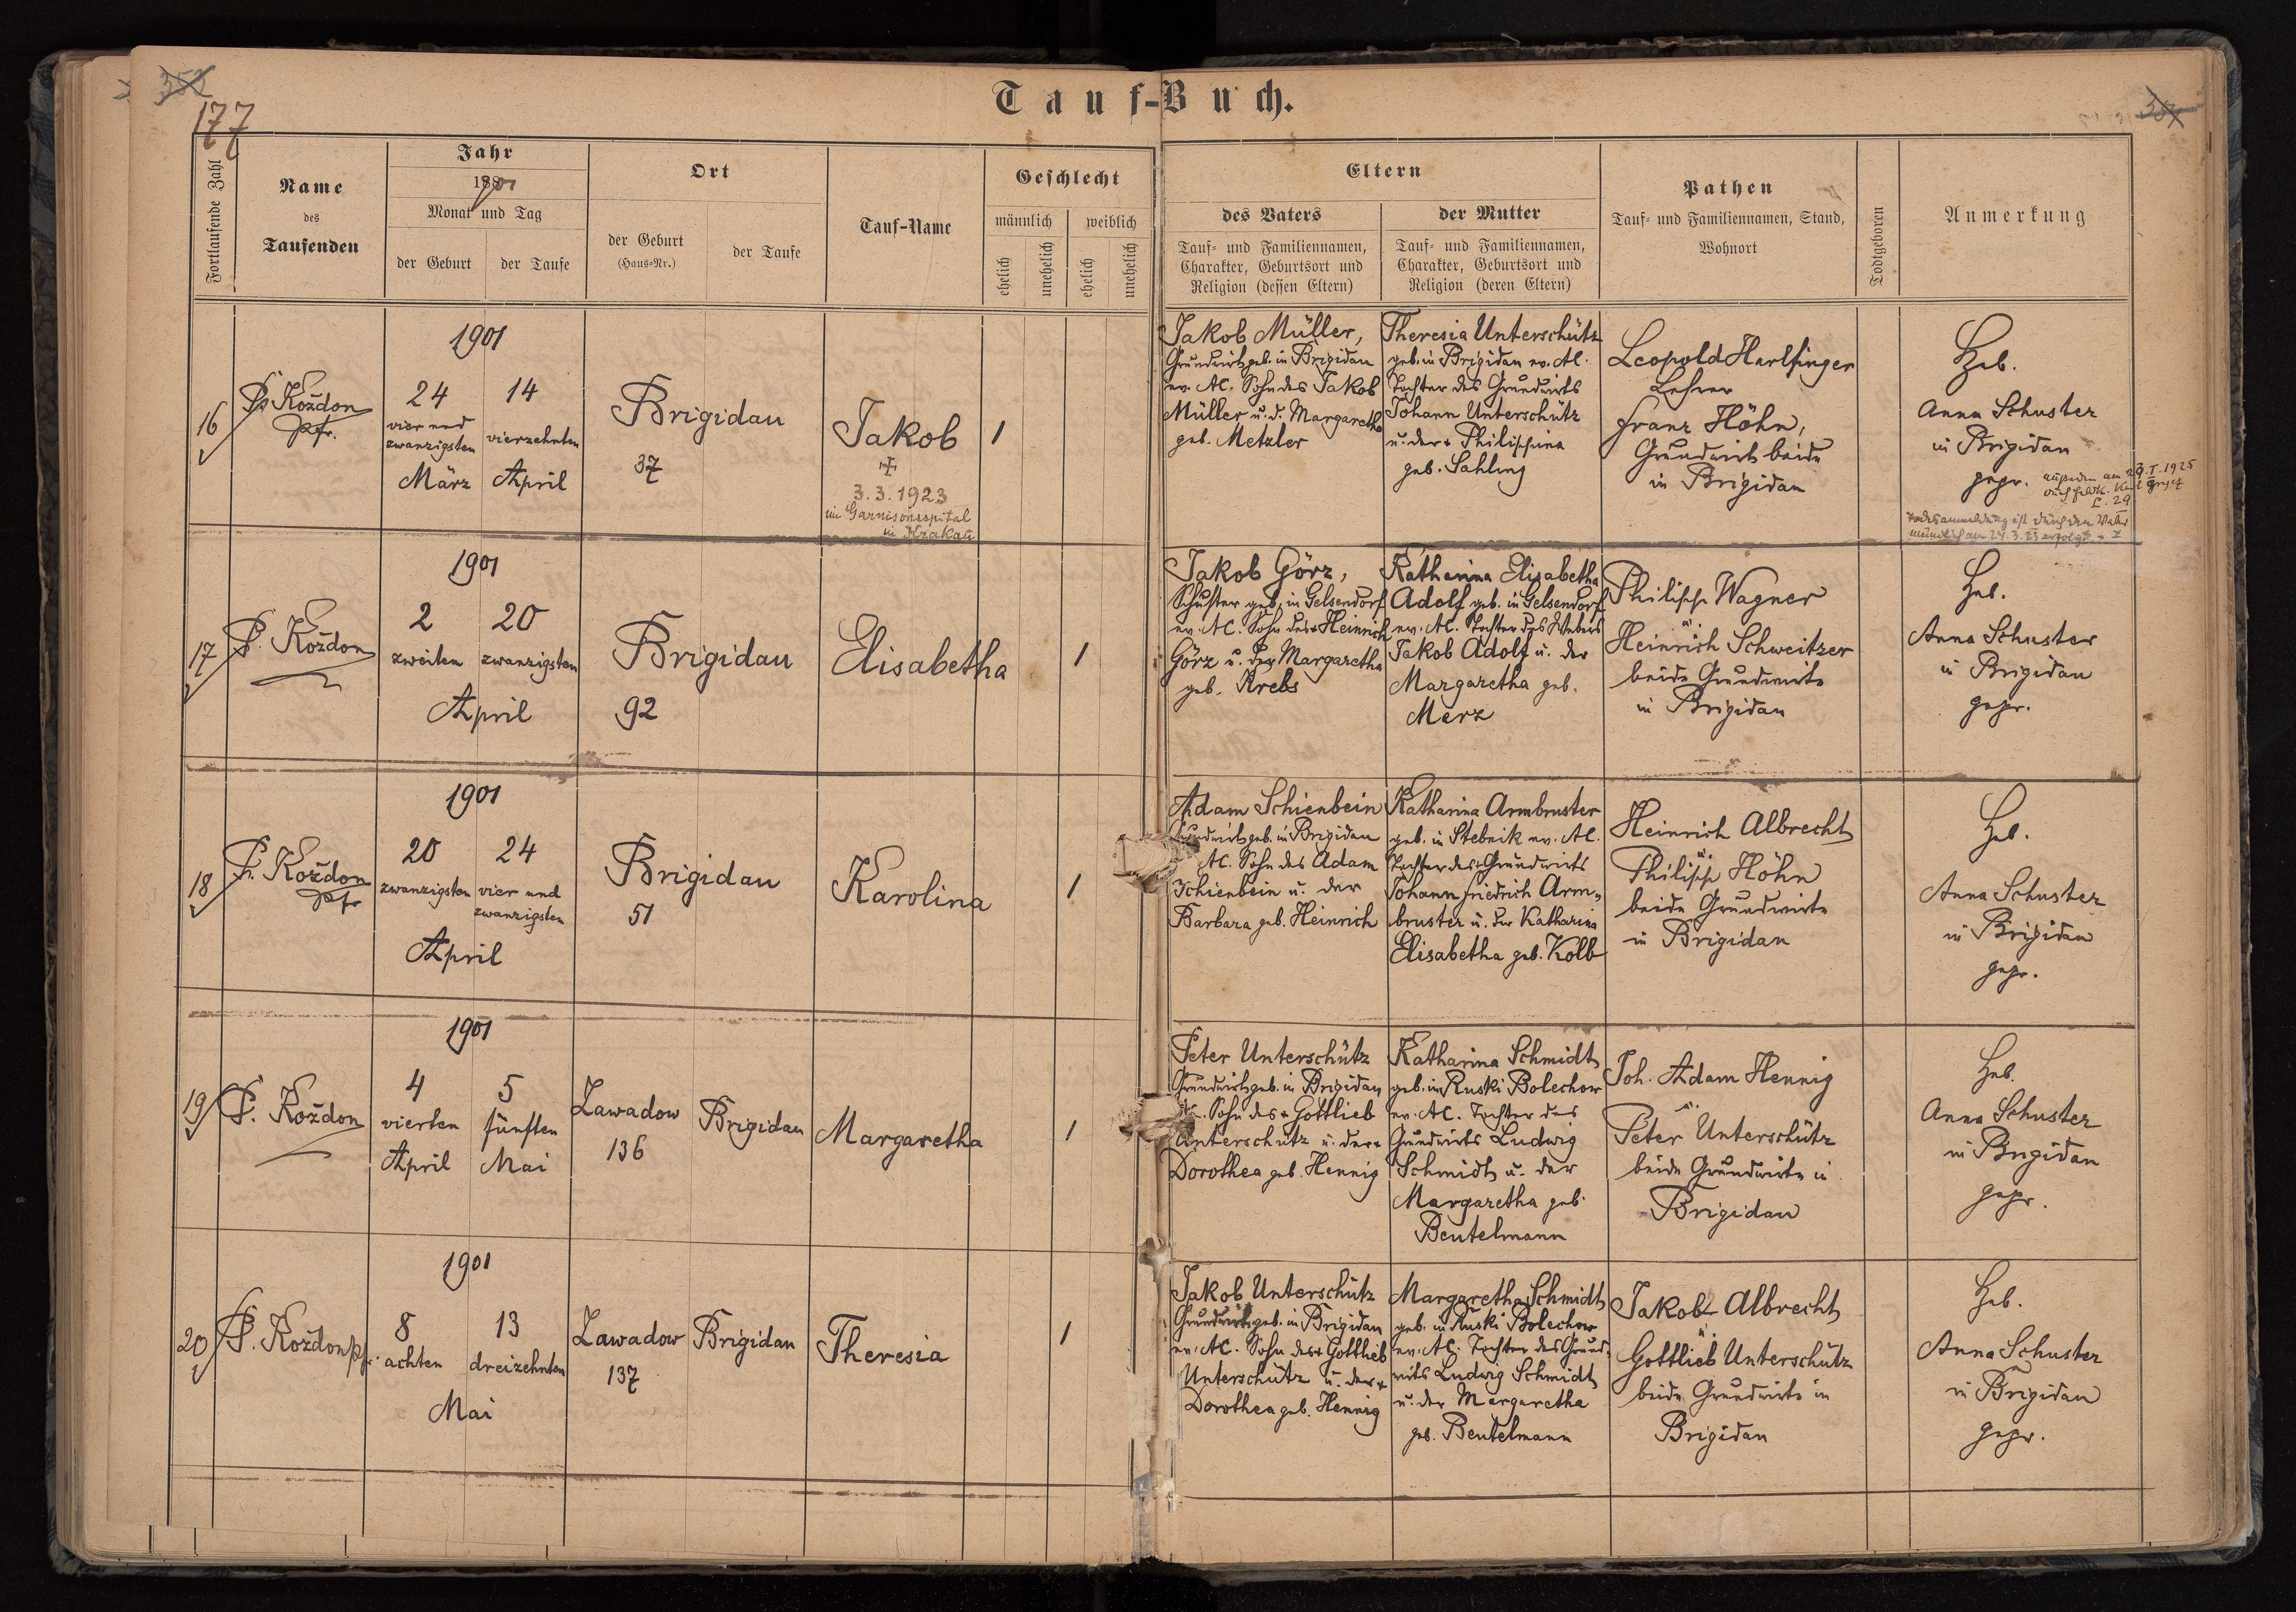 353
177
Tauf-Buch.
Fortlaufende Zahl
Name
des
Taufenden
Jahr
1901
Monat und Tag
der Geburt
der Taufe
Ort
der Geburt
(Haus-Nr.)
der Taufe
Tauf-Name
Geschlecht
männlich
weiblich
ehelich
unehelich
ehelich
unehelich
Eltern
des Vaters
Tauf- und Familiennamen,
Charakter, Geburtsort und
Religion (dessen Eltern)
der Mutter
Tauf- und Familiennamen,
Charakter, Geburtsort und
Religion (deren Eltern)
Pathen
Tauf- und Familiennamen, Stand,
Wohnort
Todtgeboren
Anmerkung
16
P. Koždon
Pfr.
1901
24
vier und
zwanzigsten
März
14
vierzehnten
April
Brigidau
37
Jakob
3.3.1923
im Garnisonsspital
in Krakau
1
Jakob Müller,
Grundwirt geb. in Brigidau
ev. AC. Sohn des Jakob
Müller u. d. Margaretha
geb. Metzler
Theresia Unterschütz
geb. in Brigidau ev. AC.
Tochter des Grundwirts
Johann Unterschütz
u. der + Philippina
geb. Sahling
Leopold Harlfinger
Lehrer
Franz Höhn,
Grundwirt beide
in Brigidau
Heb.
Anna Schuster
in Brigidau
gepr.
Todesanmeldung ist durch den Vater
mündlich am 24.3.23 erfolgt.
17
P. Koždon
1901
2
zweiten
20
zwanzigsten
April
Brigidau
92
Elisabetha
1
Jakob Görz,
Schuster geb. in Gelsendorf
ev. AC. Sohn des + Heinrich
Görz u. der Margaretha
geb. Krebs
Katharina Elisabetha
Adolf geb. in Gelsendorf
ev. AC. Tochter des Webers
Jakob Adolf u. der
Margaretha geb.
Merz
Philipp Wagner
u.
Heinrich Schweitzer
beide Grundwirte
in Brigidau
Heb.
Anna Schuster
in Brigidau
gepr.
18
P. Koždon
Pfr
1901
20
zwanzigsten
24
vier und
zwanzigsten
April
Brigidau
51
Karolina
1
Adam Schienbein
Grundwirt geb. in Brigidau
AC. Sohn des Adam
Schienbein u. der
Barbara geb. Heinrich
Katharina Armbruster
geb. in Stebnik ev. AC.
Tochter des + Grundwirts
Johann Friedrich Arm-
bruster u. der Katharina
Elisabetha geb. Kolb
Heinrich Albrecht
u.
Philipp Höhn
beide Grundwirte
in Brigidau
Heb.
Anna Schuster
in Brigidau
gepr.
19
P. Koždon
1901
4
vierten
April
5
fünften
Mai
Zawadow
136
Brigidau
Margaretha
1
Peter Unterschütz
Grundwirt geb. in Brigidau
Sohn des + Gottlieb
Unterschütz u. der +
Dorothea geb. Hennig
Katharina Schmidt
geb. in Ruski Bolechow
ev. AC. Tochter des
Grundwirts Ludwig
Schmidt u. der
Margaretha geb.
Beutelmann
Joh. Adam Hennig
u.
Peter Unterschütz
beide Grundwirte in
Brigidau
Heb.
Anna Schuster
in Brigidau
gepr.
20
P. Koždon Pfr.
1901
8
achten
13
dreizehnten
Mai
Zawadow
137
Brigidau
Theresia
1
Jakob Unterschütz
Grundwirt geb. in Brigidau
ev. AC. Sohn des + Gottlieb
Unterschütz u. der +
Dorothea geb. Hennig
Margaretha Schmidt
geb. in Ruski Bolechow
ev. AC. Tochter des Grund-
wirts Ludwig Schmidt
u. der Margaretha
geb. Beutelmann
Jakob Albrecht
u.
Gottlieb Unterschütz
beide Grundwirte in
Brigidau
Heb.
Anna Schuster
in Brigidau
gepr.